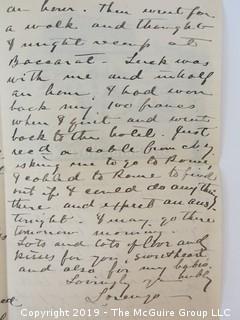 an hour. Then went for
a walk and thought
I might recoup at
Baccarat - Luck was
with me and in half
an hour, I had won
back my 100 francs
when I quit and went
back to the hotel. Just
recd a cable from
asking me to go to Rome,
I cabled to Rome to find
out if I could do anything
there and expect an ans.
tonight. I may go there
tomorrow morning.
Lots and lots of love and
kisses for you, sweetheart
and also for my babies.
Lovingly yr hubby
Lorenzo
Copyright 2019 - The McGuire Group LLC